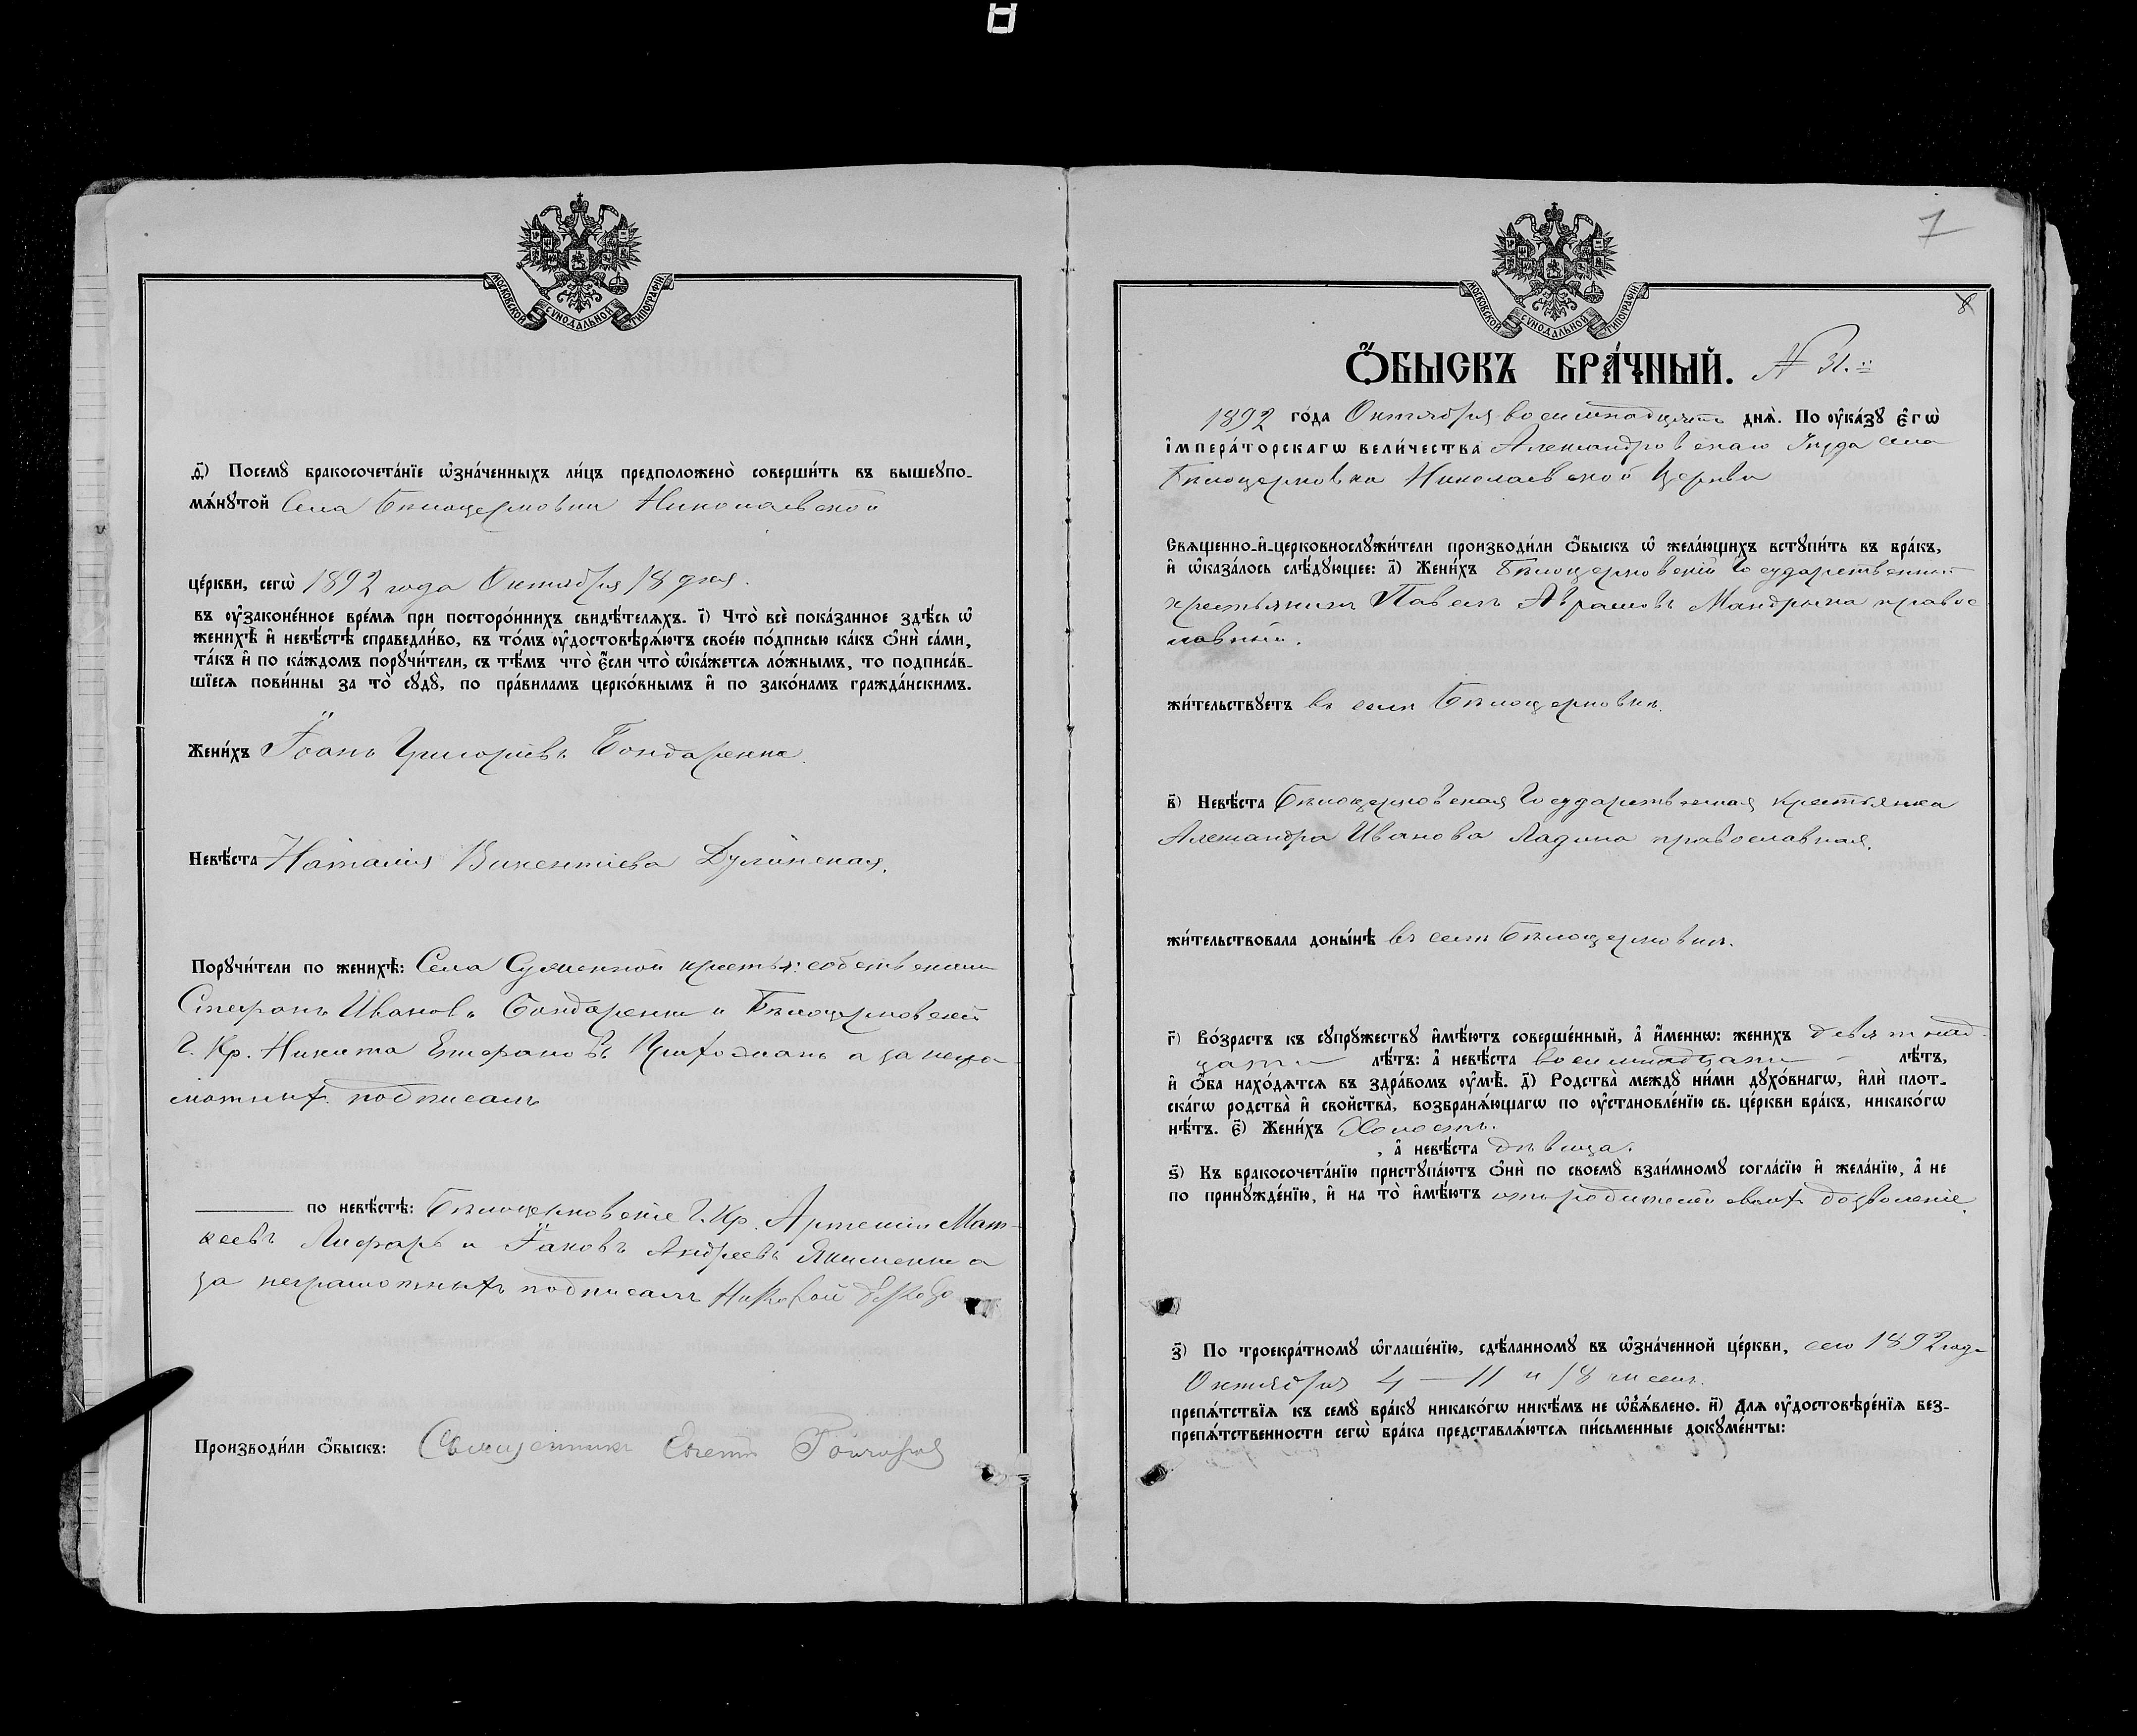 МОСКОВСКОЙ СѴНОДАЛЬНОЙ ТИПОГРАФІИ
д҃) Посемꙋ̀ бракосочета́нїе ѡ҆зна́ченныхъ ли́цъ предположено̀ соверши́ть въ вышеꙋпо-
мѧ́нꙋтой Села Бѣлоцерковки Николаевской
це́ркви, сегѡ̀ 1892 года Октября 18 дня.
въ ᲂу҆законе́нное вре́мѧ при посторо́ннихъ свидѣ́телѧхъ. і҃) Что̀ всѐ пока́занное здѣ́сь ѡ҆
женихѣ̀ и҆ невѣ́стѣ справедли́во, въ то́мъ ᲂу҆достовѣрѧ́ютъ свое́ю по́дписью ка́къ ѻ҆нѝ са́ми,
та́къ и҆ по ка́ждомъ порꙋчи́тели, съ тѣ́мъ что̀ е҆́сли что̀ ѡ҆ка́жетсѧ ло́жнымъ, то подписа́в-
шїесѧ пови́нны за то̀ сꙋдꙋ̀, по пра́виламъ церко́внымъ и҆ по зако́намъ гражда́нскимъ.
Жени́хъ Їоанъ Григоріевъ Бондаренко.
Невѣ́ста Наталія Викентіева
Порꙋчи́тели по женихѣ̀: Села крестья: собственникъ
Стефанъ Ивановъ Бондаренко и Бѣлоцерковскій
Г. Кр. Никита а за негра-
мотныхъ подписалъ
по невѣ́стѣ: Бѣлоцерковскіе Г. Кр. Артемій Мат-
ѳеевъ Лифарь и Їаковъ Андреевъ Якименко а
за неграмотныхъ подписалъ
Производи́ли ѻ҆́быскъ: Священникъ
7
8
МОСКОВСКОЙ СѴНОДАЛЬНОЙ ТИПОГРАФІИ
Ѻ҆́БЫСКЪ БРА́ЧНЫЙ. № 31.
1892 го́да Октября восемнадцать днѧ̀. По ᲂу҆ка́зꙋ є҆гѡ̀
і҆мпера́торскагѡ вели́чества Александровскаго Уѣзда села
Бѣлоцерковки Николаевской Церкви
Свѧщенно-и҆-церковнослꙋжи́тели производи́ли ѻ҆́быскъ ѡ҆ жела́ющихъ встꙋпи́ть въ бра́къ,
и҆ ѡ҆каза́лось слѣ́дꙋющее: а҃) Жени́хъ Бѣлоцерковскій Государственный
крестьянинъ Павелъ Аврамовъ Мандрыка правос
лавный.
жи́тельствꙋетъ въ селѣ Бѣлоцерковкѣ.
в҃) Невѣ́ста Бѣлоцерковская Государственная крестьянка
Александра Иванова православная.
жи́тельствовала доны́нѣ въ селѣ Бѣлоцерковкѣ.
г҃) Во́зрастъ къ сꙋпрꙋжествꙋ и҆мѣ́ютъ соверше́нный, а҆ и҆́меннѡ: женихъ девятнад-
цати лѣ́тъ: а҆ невѣ́ста восемнадцати лѣ́тъ,
и҆ ѻ҆́ба нахо́дѧтсѧ въ здра́вомъ ᲂу҆мѣ̀. д҃) Родства̀ междꙋ̀ ни́ми дꙋхо́внагѡ, и҆лѝ плот-
ска́гѡ родства̀ и҆ свойства̀, возбранѧ́ющагѡ по ᲂу҆становле́нїю св. це́ркви бра́къ, никако́гѡ
нѣ́тъ. є҃) Жени́хъ Холостъ.
, а҆ невѣ́ста дѣвица.
ѕ҃) Къ бракосочета́нїю пристꙋпа́ютъ ѻ҆нѝ по своемꙋ̀ взаи́мномꙋ согла́сїю и҆ жела́нїю, а҆ не
по принꙋжде́нїю, и҆ на то̀ и҆мѣ́ютъ отъ родителей своихъ дозволеніе.
з҃) По троекра́тномꙋ ѡ҆глаше́нїю, сдѣ́ланномꙋ въ ѡ҆зна́ченной це́ркви, сего 1892 года
Октября 4 — 11 и 18 чиселъ.
препѧ́тствїѧ къ семꙋ̀ бра́кꙋ никако́гѡ никѣ́мъ не ѡ҆б̾ѧ́влено. и҃) Для ᲂу҆достовѣре́нїѧ без-
препѧ́тственности сегѡ̀ бра́ка представлѧ́ютсѧ пи́сьменные докꙋме́нты: